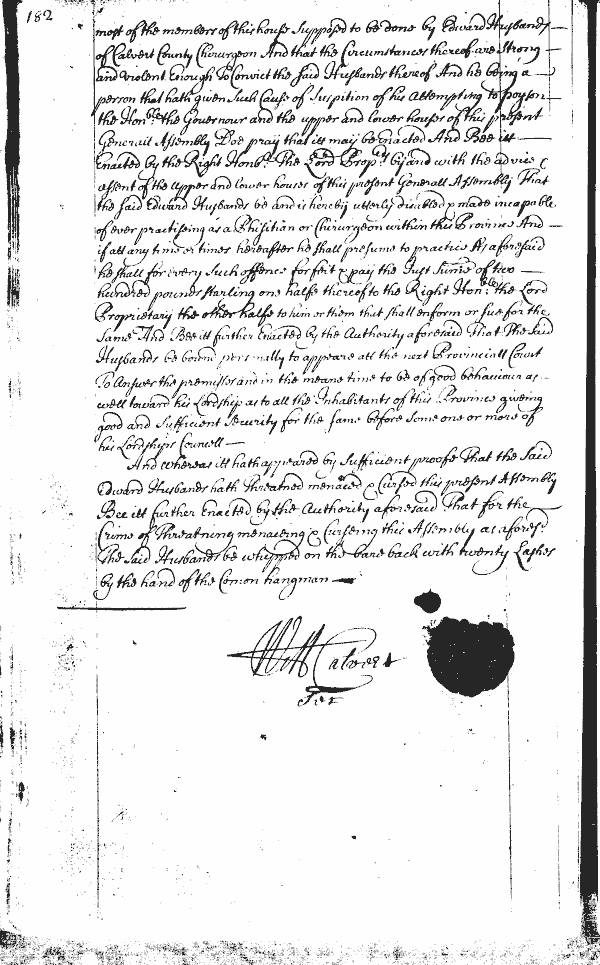 182
most of the members of this house Supposed to be done by Edward Husbands
of Calvert County Chirurgeon And that the Circumstances thereof are Strong
and violent Enough To Convict the Said Husbands thereof And he being a
person that hath given Such Cause of Suspition of his Attempting to poyson
the Honble the Governour and the upper and lower houses of this present
Generall Assembly Doe pray that itt may be Enacted And Bee itt
Enacted by the Right Honble The Lord Propry by and with the advice &
assent of the upper and lower houses of this present Generall Assembly That
the Said Edward Husbands be and is hereby utterly disabled & made incapable
of ever practiseing as a Phisitian or Chirurgeon within this Province And
if att any time or times hereafter he shall presume to practice As aforesaid
he shall for every Such offence forfeit & pay the Just Sume of two
hundred pounds starling one halfe thereof to the Right Honble the Lord
Proprietary the other halfe to him or them that shall enform or sue for the
Same And Bee itt further Enacted by the Authority aforesaid That The Said
Husbands be bound personally to appeare att the next Provinciall Court
To Answer the premisses and in the meane time to be of good behaviour as
well toward his Lordship as to all the Inhabitants of this Province giveing
good and Sufficient Security for the Same before some one or more of
his Lordships Councell
And whereas itt hath appeared by Sufficient proofe That the Said
Edward Husbands hath Threatned menaced & Cursed this present Assembly
Bee itt further Enacted by the Authority aforesaid That for the
Crime of Threatning menaceing & Curseing this Assembly as aforesd
The Said Husbands be whipped on the bare back with twenty Lashes
by the hand of the Comon hangman
Will Calvert